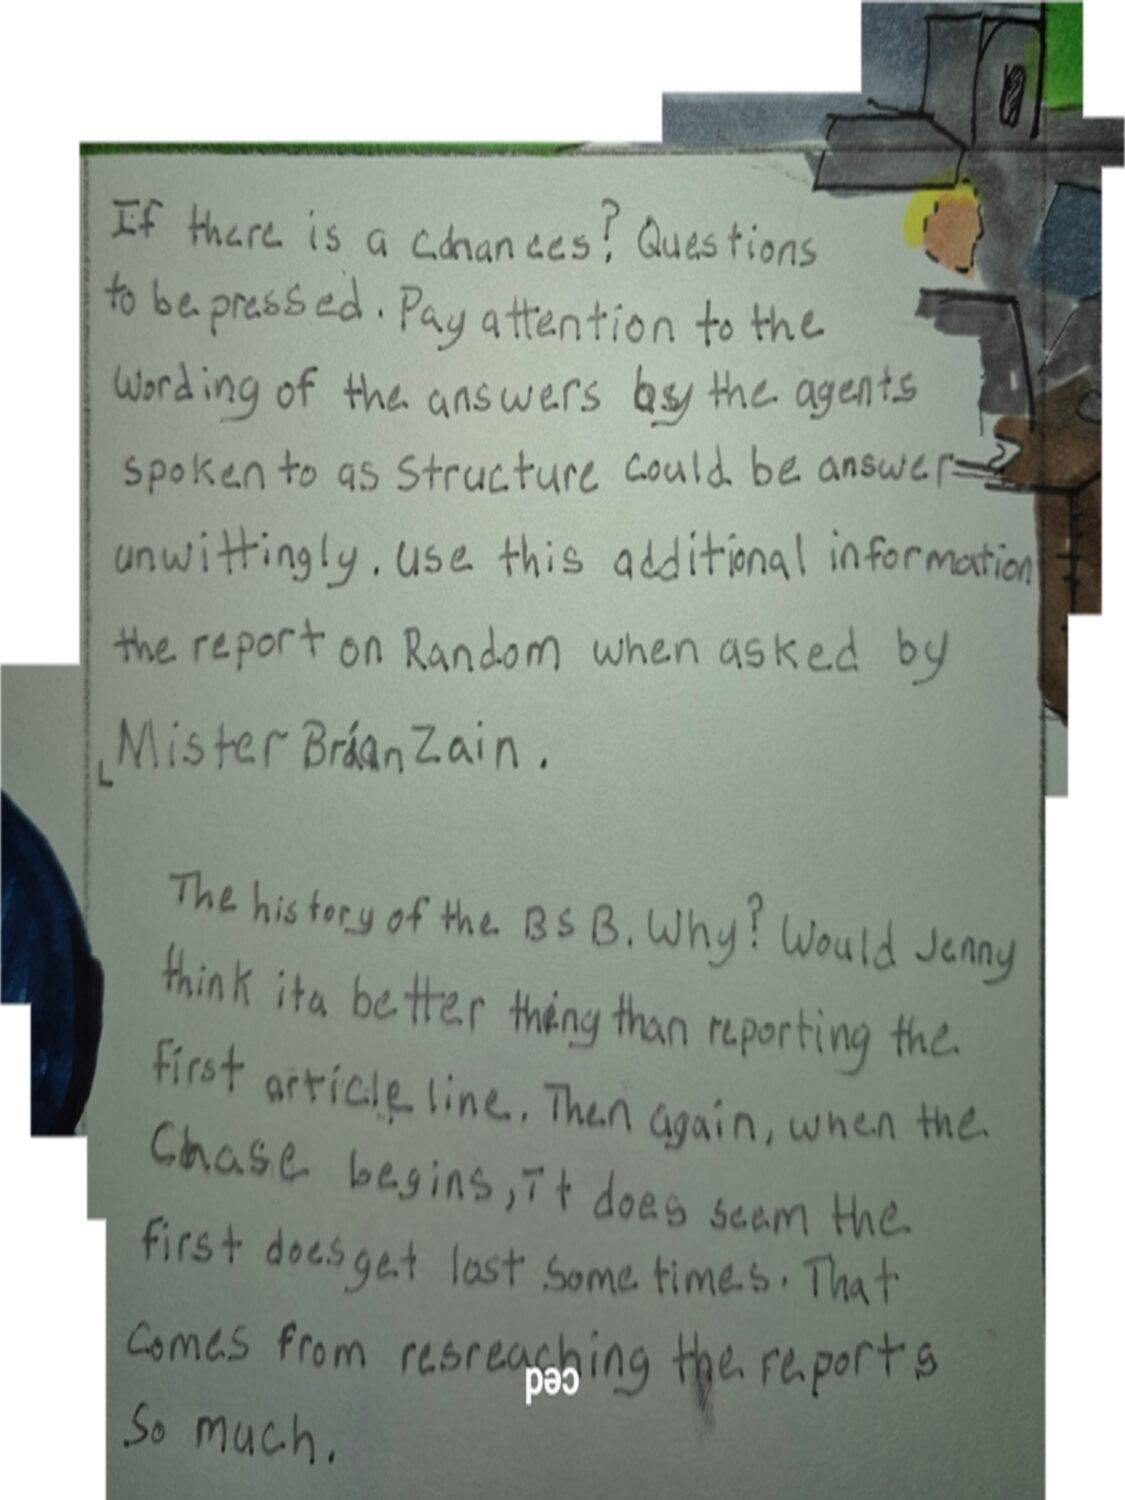 If there is a cdhances? Questions
to be pressed. Pay attention to the
wording of the answers by the agents
spoken to as structure could be answer
unwittingly. Use this additional information
the report on Random when asked by
Mister Brian Zain.
The history of the BSB. Why? Would Jenny
think it a better thing than reporting the
first article line. Then again, when the
Chase begins, it does seem the
first does get lost some times. That
comes from resreaching the reports
so much.
ced